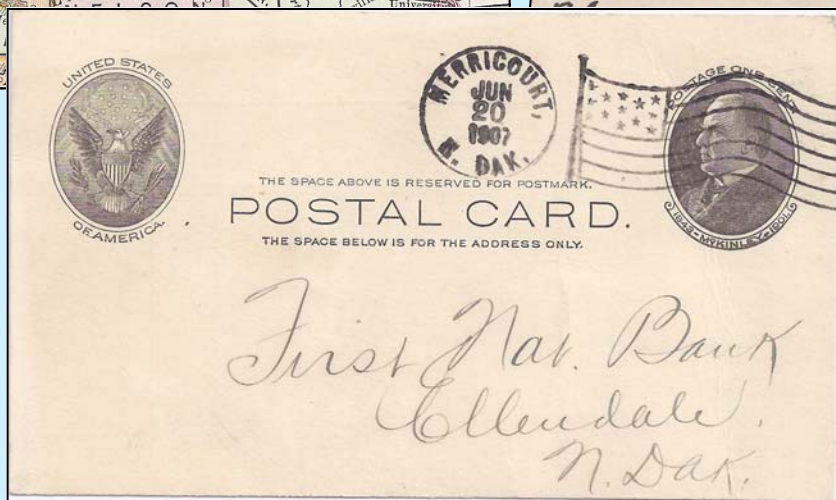 NELSON
Universi
UNITED STATES
OF AMERICA.
MERRICOURT,
JUN
20
1907
N. DAK.
POSTAGE ONE CENT
1843-McKINLEY-1901.
THE SPACE ABOVE IS RESERVED FOR POSTMARK.
POSTAL CARD.
THE SPACE BELOW IS FOR THE ADDRESS ONLY.
First Nat. Bank
Ellendale.
N. Dak.